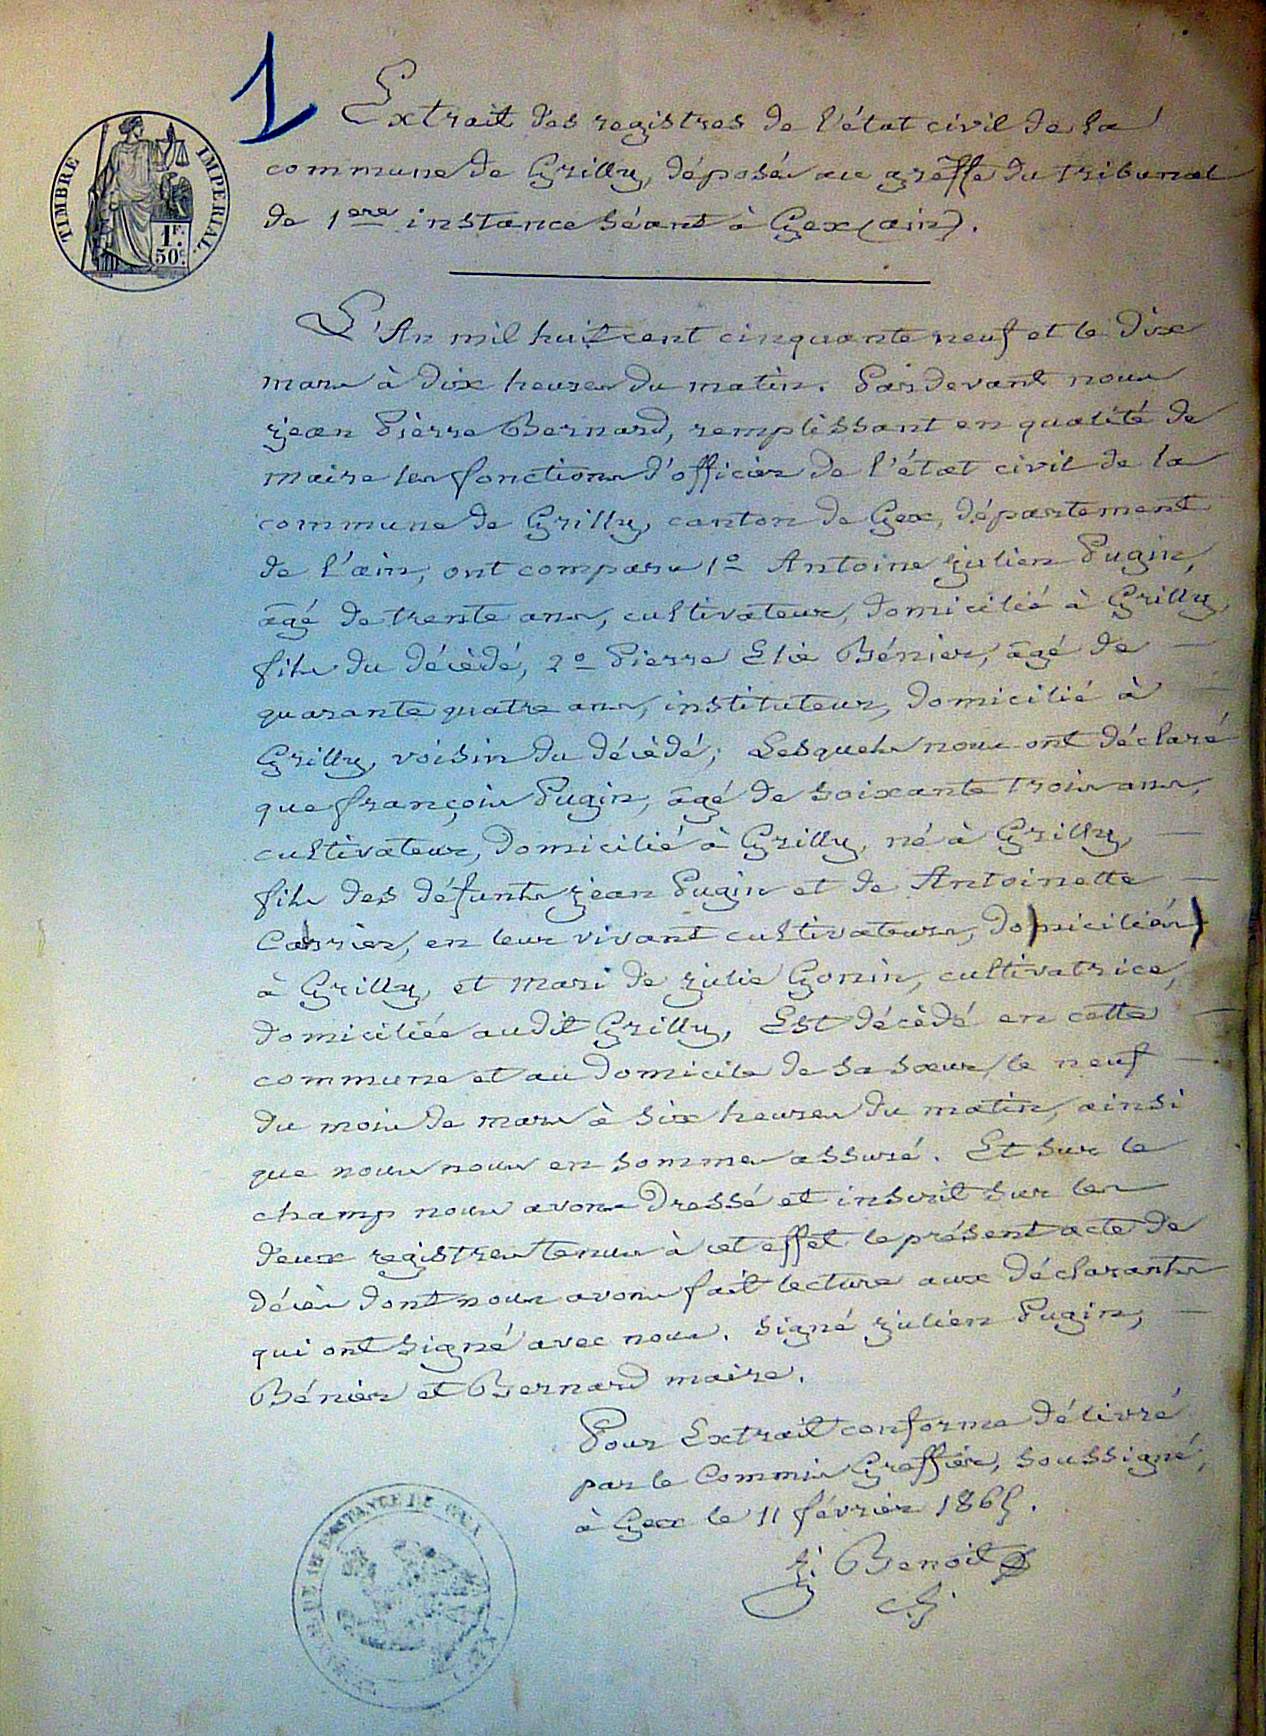 1
TIMBRE IMPERIAL
1F.
50c.
Extrait des registres de l'état civil de la
commune de Grilly, déposés au greffe du tribunal
de 1ere instance séant à Gex (ain).
L'An mil huit cent cinquante neuf et le dix
mars à dix heures du matin. Pardevant nous
jean Pierre Bernard, remplissant en qualité de
maire les fonctions d'officier de l'état civil de la
commune de Grilly, canton de Gex, département
de l'ain, ont comparu 1o Antoine julien Pugin,
âgé de trente ans, cultivateur, domicilié à Grilly,
fils du décédé, 2o Pierre Elie Bénier, âgé de
quarante quatre ans, instituteur, domicilié à
Grilly, voisin du décédé; Lesquels nous ont déclaré
que françois Pugin, âgé de soixante trois ans,
cultivateur, domicilié à Grilly, né à Grilly,
fils des défunts jean Pugin et de Antoinette
Carrier, en leur vivant cultivateurs, domiciliés
à Grilly, et mari de julie Gonin, cultivatrice,
domiciliée audit Grilly, Est décédé en cette
commune et au domicile de sa sœur, le neuf
du mois de mars à six heures du matin, ainsi
que nous nous en sommes assuré. Et sur le
champ nous avons dressé et inscrit sur les
deux registres tenus à cet effet le présent acte de
décès dont nous avons fait lecture aux déclarants
qui ont signé avec nous. signé julien Pugin,
Bénier et Bernard maire.
Pour Extrait conforme délivré
par le Commis Greffier, soussigné,
à Gex le 11 février 1865.
j. Benoit
INSTANCE DE GEX